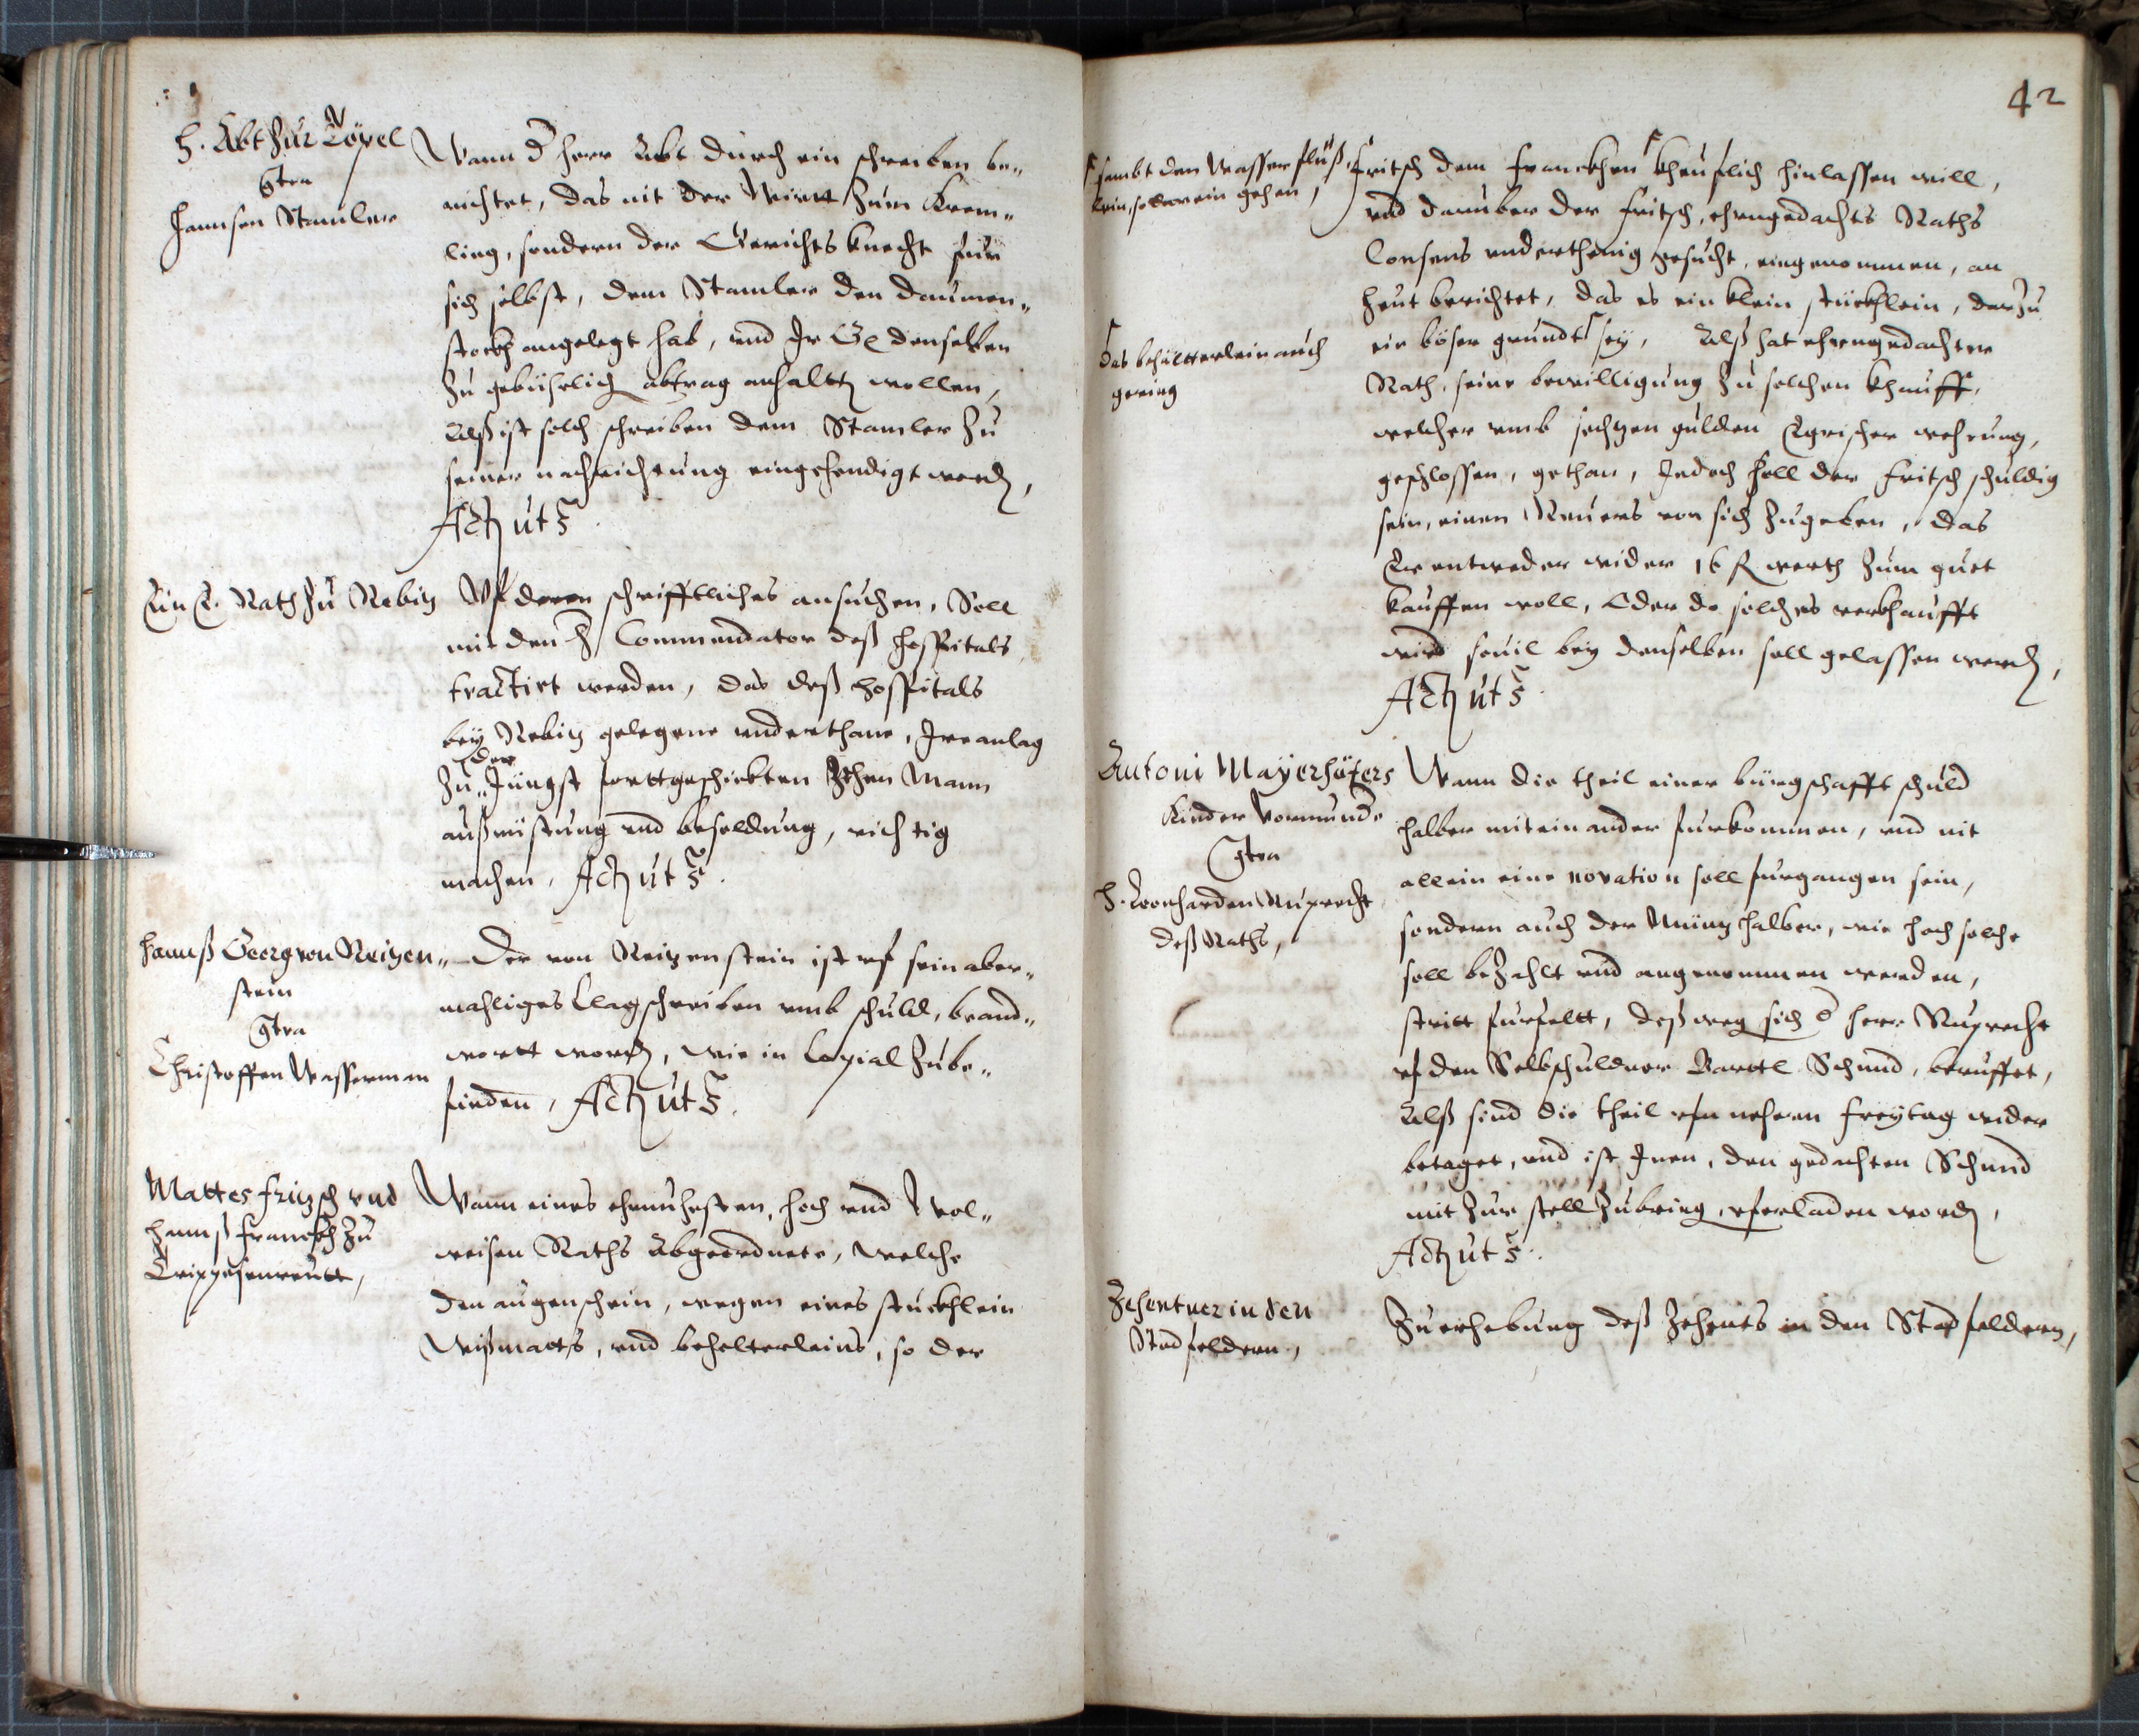 H. Abt zur Töpel
Ctra
Hannsen Stamler
Wann d herr Abt durch ein schreiben be„
richtet, das nit der Wirtt zum Krem„
ling, sondern der Gerichts knecht fur
sich selbst, dem Stamler den daumen„
stockh angelegt hab, und Ir denselben
zu gebührlich abtrag anhaltn wollen,
Alß ist solch schreiben dem Stamler zu
seiner nachrichtung eingehendigt word,
Act ut s
Ein E. Rath zu Rebitz
Vf deren schrifftliches ansuchen, Soll
mit den H Commendator deß hospitals
tractirt werden, das deß hospitals
bey Rebitz gelegene underthane, Ire anlag
der
zu„ Jüngst forttgeschickten Zehen Mann
außrüstung und besoldung, richtig
machen, Act ut s.
Hannß Georg von Reitzen„
stein
Ctra
Christoffen Wasserman
Der von Reitzenstein ist vf sein aber„
mahliges Clagschreiben umb schuld, beand„
wortt word, wie in Copial zube„
finden, Act ut s.
Mattes Fritzsch vnd
Hannß Franckh zu
Wann eines ehrnuhesten, hoch und wol„
weisen Raths Abgeordnete, welche
den augenschein, wegen eines stuckhlein
Wißmatts, und behelterleins, so der
42
sambt den Wasserfluß,
lein, so darein gehen,
Fritsch dem Franckhen kheuflich hinlassen will,
und daruber der Fritsch, ehrngedachts Raths
Consens underthenig gesucht, eingenommen, an
heut berichtet, das es ein klein stückhlein, darzu
das behältterlein auch
gering
ein böser grundt sey, Alß hat ehrengedachter
Rath, seine bewilligung zu solchen khauff,
welcher umb sechzen gulden Egrischer wehrung,
geschlossen, gethan, Jedoch soll der Fritsch schuldig
sein, einen Reuers von sich zugeben, das
Er entweder wider 16 fl werth zum guet
kauffen woll, Oder do solches verkhaufft
wird souil bey denselben soll gelassen werd,
Act ut s.
Antoni Mayerhöfers
Kinder Vormund
Ctra
H. Leonharden Ruprecht
deß Raths,
Wann die theil einer bürgschafft schuld
halber mit einander furkommen, und nit
allein eine novation soll furgangen sein,
sondern auch der Müntz halber, wie hoch solche
soll bezahlt und angenommen werden,
stritt furfeltt, deßweg sich d herr Ruprecht
vf den Selbschuldner Barttl Schmid, beruffet,
Alß sind die theil vfn nehern Freytag wider
betaget, und ist Inen, den gedachten Schmid
mit zur stell zubring, vferladen word,
Act ut s.
Zehentner in den
Stadfeldern,
Zu erhebung deß Zehents in den Stadfeldern,